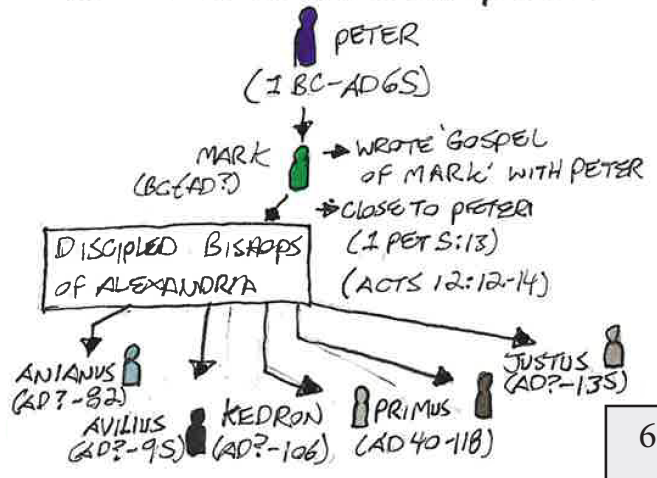 PETER
(1 BC-AD65)
MARK
(BC/AD?)
WROTE 'GOSPEL
OF MARK' WITH PETER
CLOSE TO PETER
(1 PET 5:13)
(ACTS 12:12-14)
DISCIPLED BISHOPS
OF ALEXANDRIA
ANIANUS
(AD?-82)
AVILIUS
(AD?-95)
KEDRON
(AD?-106)
PRIMUS
(AD 40-118)
JUSTUS
(AD?-135)
6